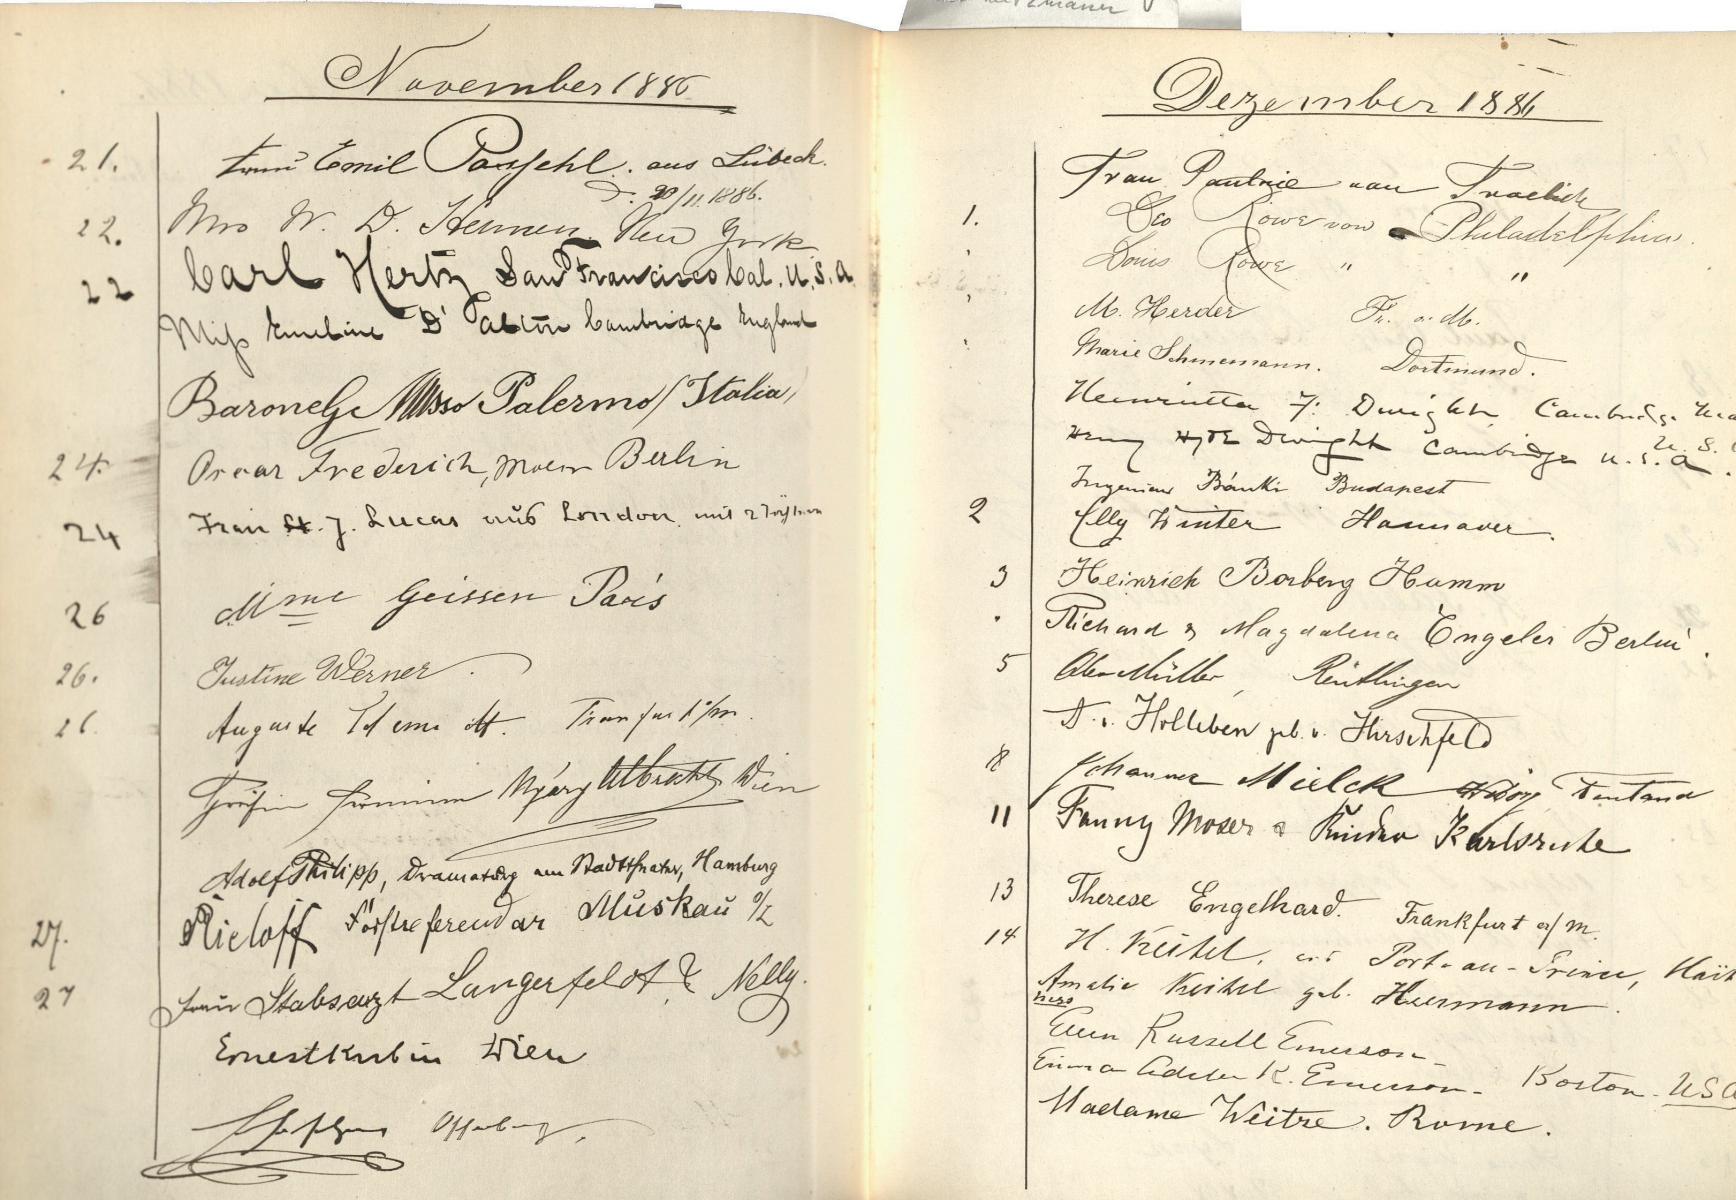 November 1886
21. Frau Emil Possehl. aus Lübeck.
D. 20/11. 1886.
22. Mrs W. D. Hennen. New York
22 Carl Hertz San Francisco Cal. U.S.A
Miss Emeline D'alton Cambridge England
Baronesse Musso Palermo (Italia)
24. Oscar Frederich, Berlin
24 Frau J. Lucas aus London mit 2 Töchtern
26 Mme Geissen Paris
26. Justine Werner.
26. Auguste Frankfurt a/m.
Gräfin Nyáry Albrecht Wien
Adolf Philipp, Dramaturg am Stadttheater, Hamburg
27. Rieloff Forstreferendar Muskau O/L
27 Frau Stabsarzt Langerfeldt & Nelly.
Ernest Kubin Wien
Offenburg.
Dezember 1886
Frau Pauline van
1. Leo Rowe von Philadelphia.
" Louis Rowe " "
" M. Herder Fr. a. M.
" Marie Schnemann. Dortmund.
Henrietta F. Dwight, Cambridge
U.S.
Henry Hyde Dwight Cambridge U.S.A.
Ingenieur Bánki Budapest
2 Elly Winter Hannover.
3 Heinrich Borberg Hamm
" Richard & Magdalena Engeler Berlin.
5 Müller, Reutlingen
D. v. Holleben geb. v. Hirschfeld
8 Johannes Mielck
11 Fanny Moser & Kinder Karlsruhe
13 Therese Engelhard. Frankfurt a/m.
14 H. Keitel, aus Port-au-Prince,
Amalie Keitel geb. Heermann.
Ellen Russell Emerson
Emma Adelia K. Emerson. Boston. USA
Madame Weitre. Rome.